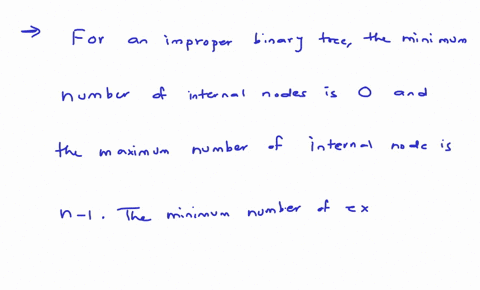 → For an improper binary tree, the minimum
number of internal nodes is 0 and
the maximum number of internal node is
n-1. The minimum number of ex